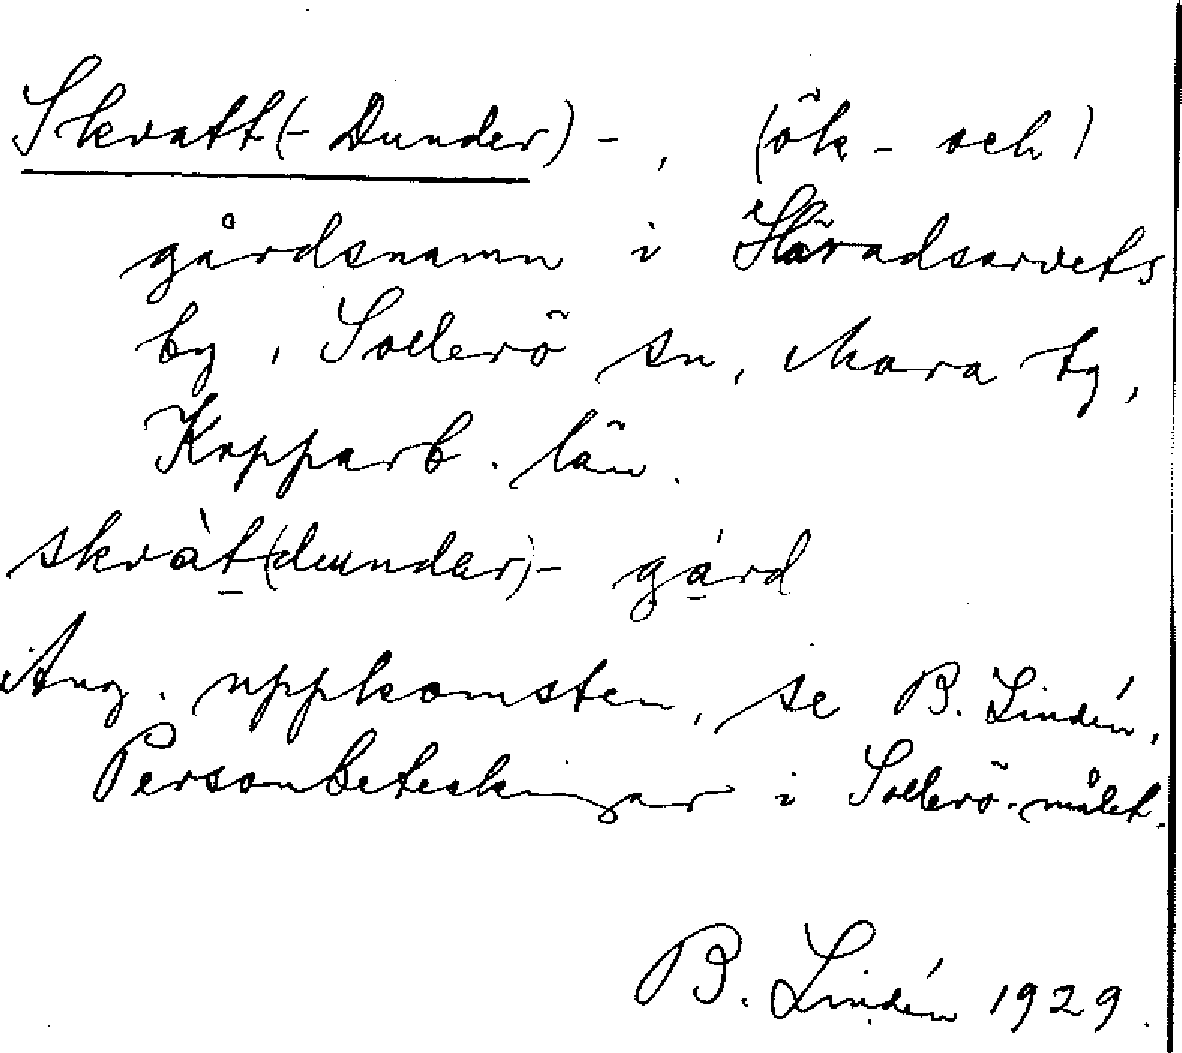 Skratt(-Dunder)-, (ök- och)
gårdsnamn i Häradsarvets
by, Sollerö sn, Mora tg,
Kopparb. län.
skràt(dundar)- gård
Ang. uppkomsten, se B. Lindén,
Personbeteckningar i Sollerö-målet.
B. Lindén 1929.